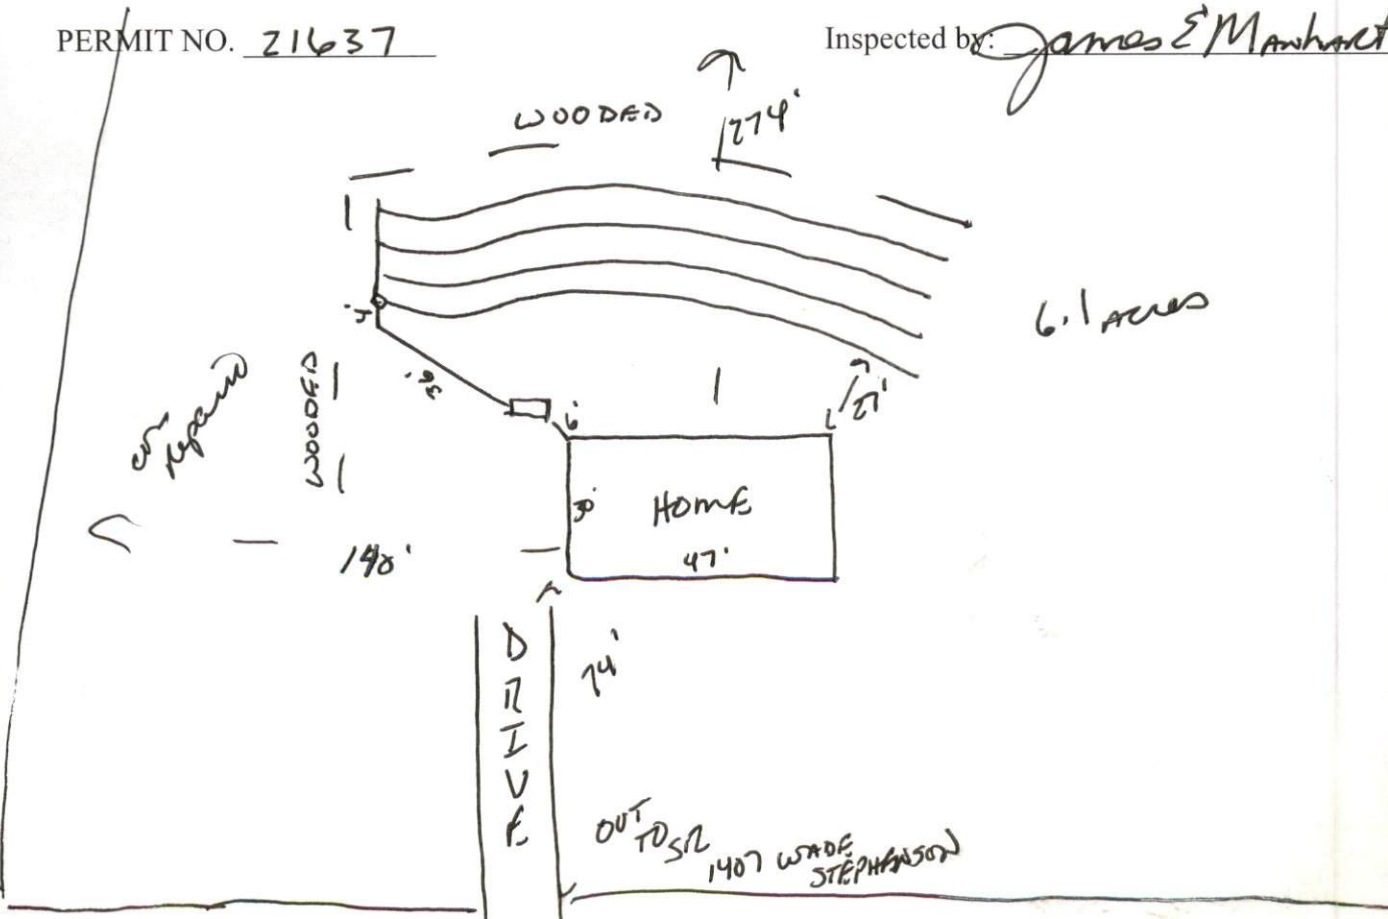 PERMIT NO. 21637
Inspected by: James E Manhart
WOODED
274'
6.1 ACRES
WOODED
36'
6'
27'
30'
HOME
47'
DRIVE
74'
OUT
TO SR
1407 WADE
STEPHENSON